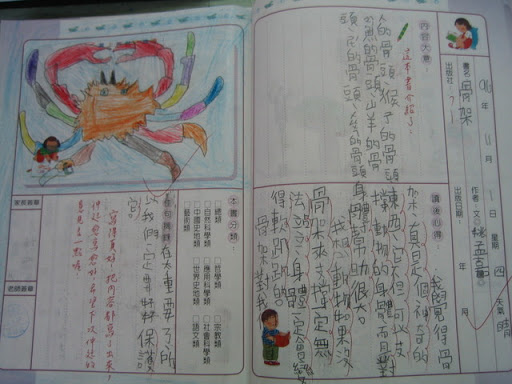 年 11 月 1 日 星期 四 天氣 晴
書名： 骨架
作者： 文
出版社：
出版日期： 年 月
內容大意：
這本書介紹了
人的骨頭、猴子的骨頭
、魚的骨頭、山羊的骨
頭、的骨頭、的骨頭
讀後心得：
我覺得骨
架真是個神奇的
東西，它不但可以支
撐動物的身體而且對
身體幫助很大。
我想動物如果沒
骨架來支撐一定無
法身體一定會變
得軟趴趴的
骨架對我
本書分類：
□總類 □哲學類 □宗教類
□自然科學類 □應用科學類 □社會科學類
□中國史地類 □世界史地類 □語文類
□藝術類
佳句摘錄
在太重要了，所
以我們一定要好好保護
它。
寫得真好！把內容都寫了出來，
意見多一點喔。
家長簽章
老師簽章